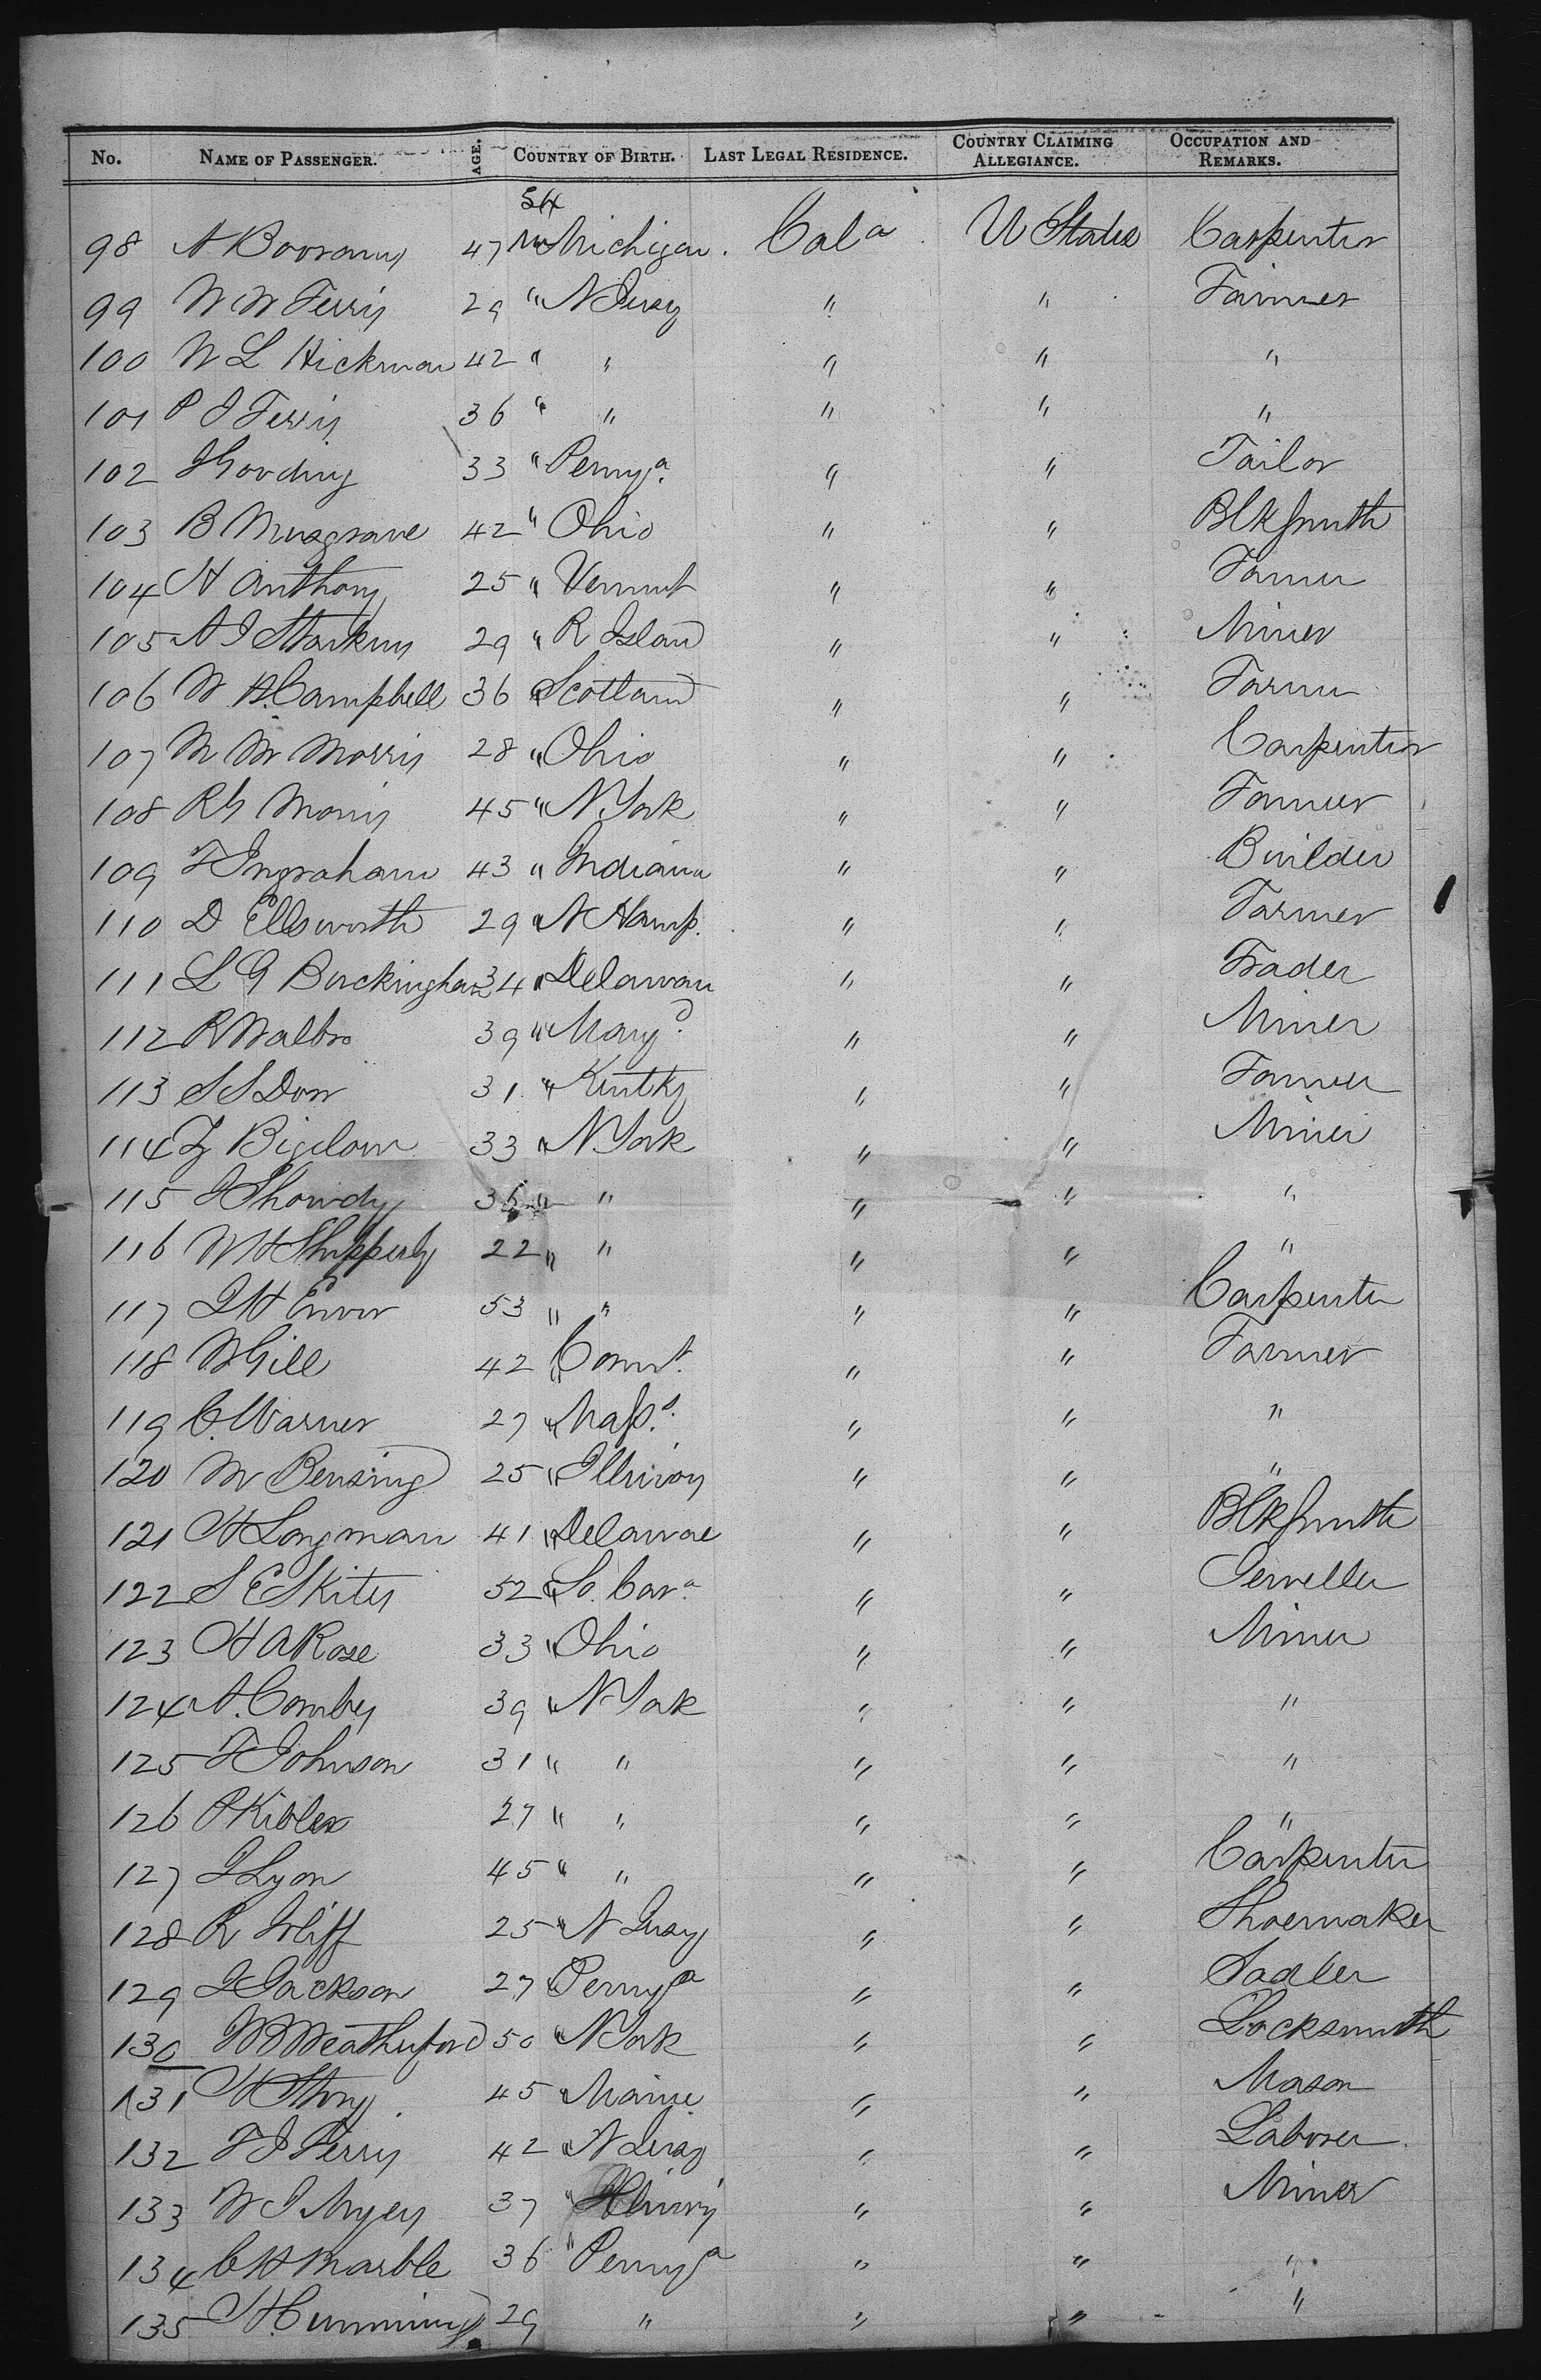 No. NAME OF PASSENGER. AGE. COUNTRY OF BIRTH. LAST LEGAL RESIDENCE. COUNTRY CLAIMING ALLEGIANCE. OCCUPATION AND REMARKS.
98 A 47 Michigan. Cala U States Carpenter
99 W W Ferris 29 " N Jersey " " Farmer
100 W L Hickman 42 " " " " "
101 P J Ferris 36 " " " " "
102 33 " Pennya. " " Tailor
103 B Musgrave 42 " Ohio " " Blksmith
104 H Anthony 25 " Vermnt " " Farmer
105 A J 29 " R Island " " Miner
106 W H. Campbell 36 " Scotland " " Farmer
107 M W Morris 28 " Ohio " " Carpenter
108 R G Morris 45 " N York " " Farmer
109 F Ingraham 43 " Indiana " " Builder
110 D Ellsworth 29 " N Hamp. " " Farmer
111 L G Buckingham 34 " Delaware " " Trader
112 R Walbro 39 " Maryd. " " Miner
113 S S Dorr 31 " Kentky " " Farmer
114 Z Bigelow 33 " N York " " Miner
115 " " " " "
116 W H 22 " " " " "
117 J H 53 " " " " Carpenter
118 W Gill 42 " Connt. " " Farmer
119 C. Warner 27 " Masss. " " "
120 M Bensing 25 " Illinois " " "
121 H Longman 41 " Delaware " " Blksmith
122 S E Skites 52 " So. Cara. " " Jeweller
123 H A Rose 33 " Ohio " " Miner
124 A. Comby 39 " N York " " "
125 F Johnson 31 " " " " "
126 P Kibler 27 " " " " "
127 J Lyon 45 " " " " Carpenter
128 R 25 " N Jersey " " Shoemaker
129 J Jackson 27 " Pennya " " Sadler
130 W B Weatherford 50 " N York " " Locksmith
131 H Story. 45 " Maine " " Mason
132 F J Perry 42 " N Jersey " " Laborer.
133 W J Myers 37 " Illinois " " Miner
134 C H Marble 36 " Pennya " " "
135 H Cummings 29 " " " "